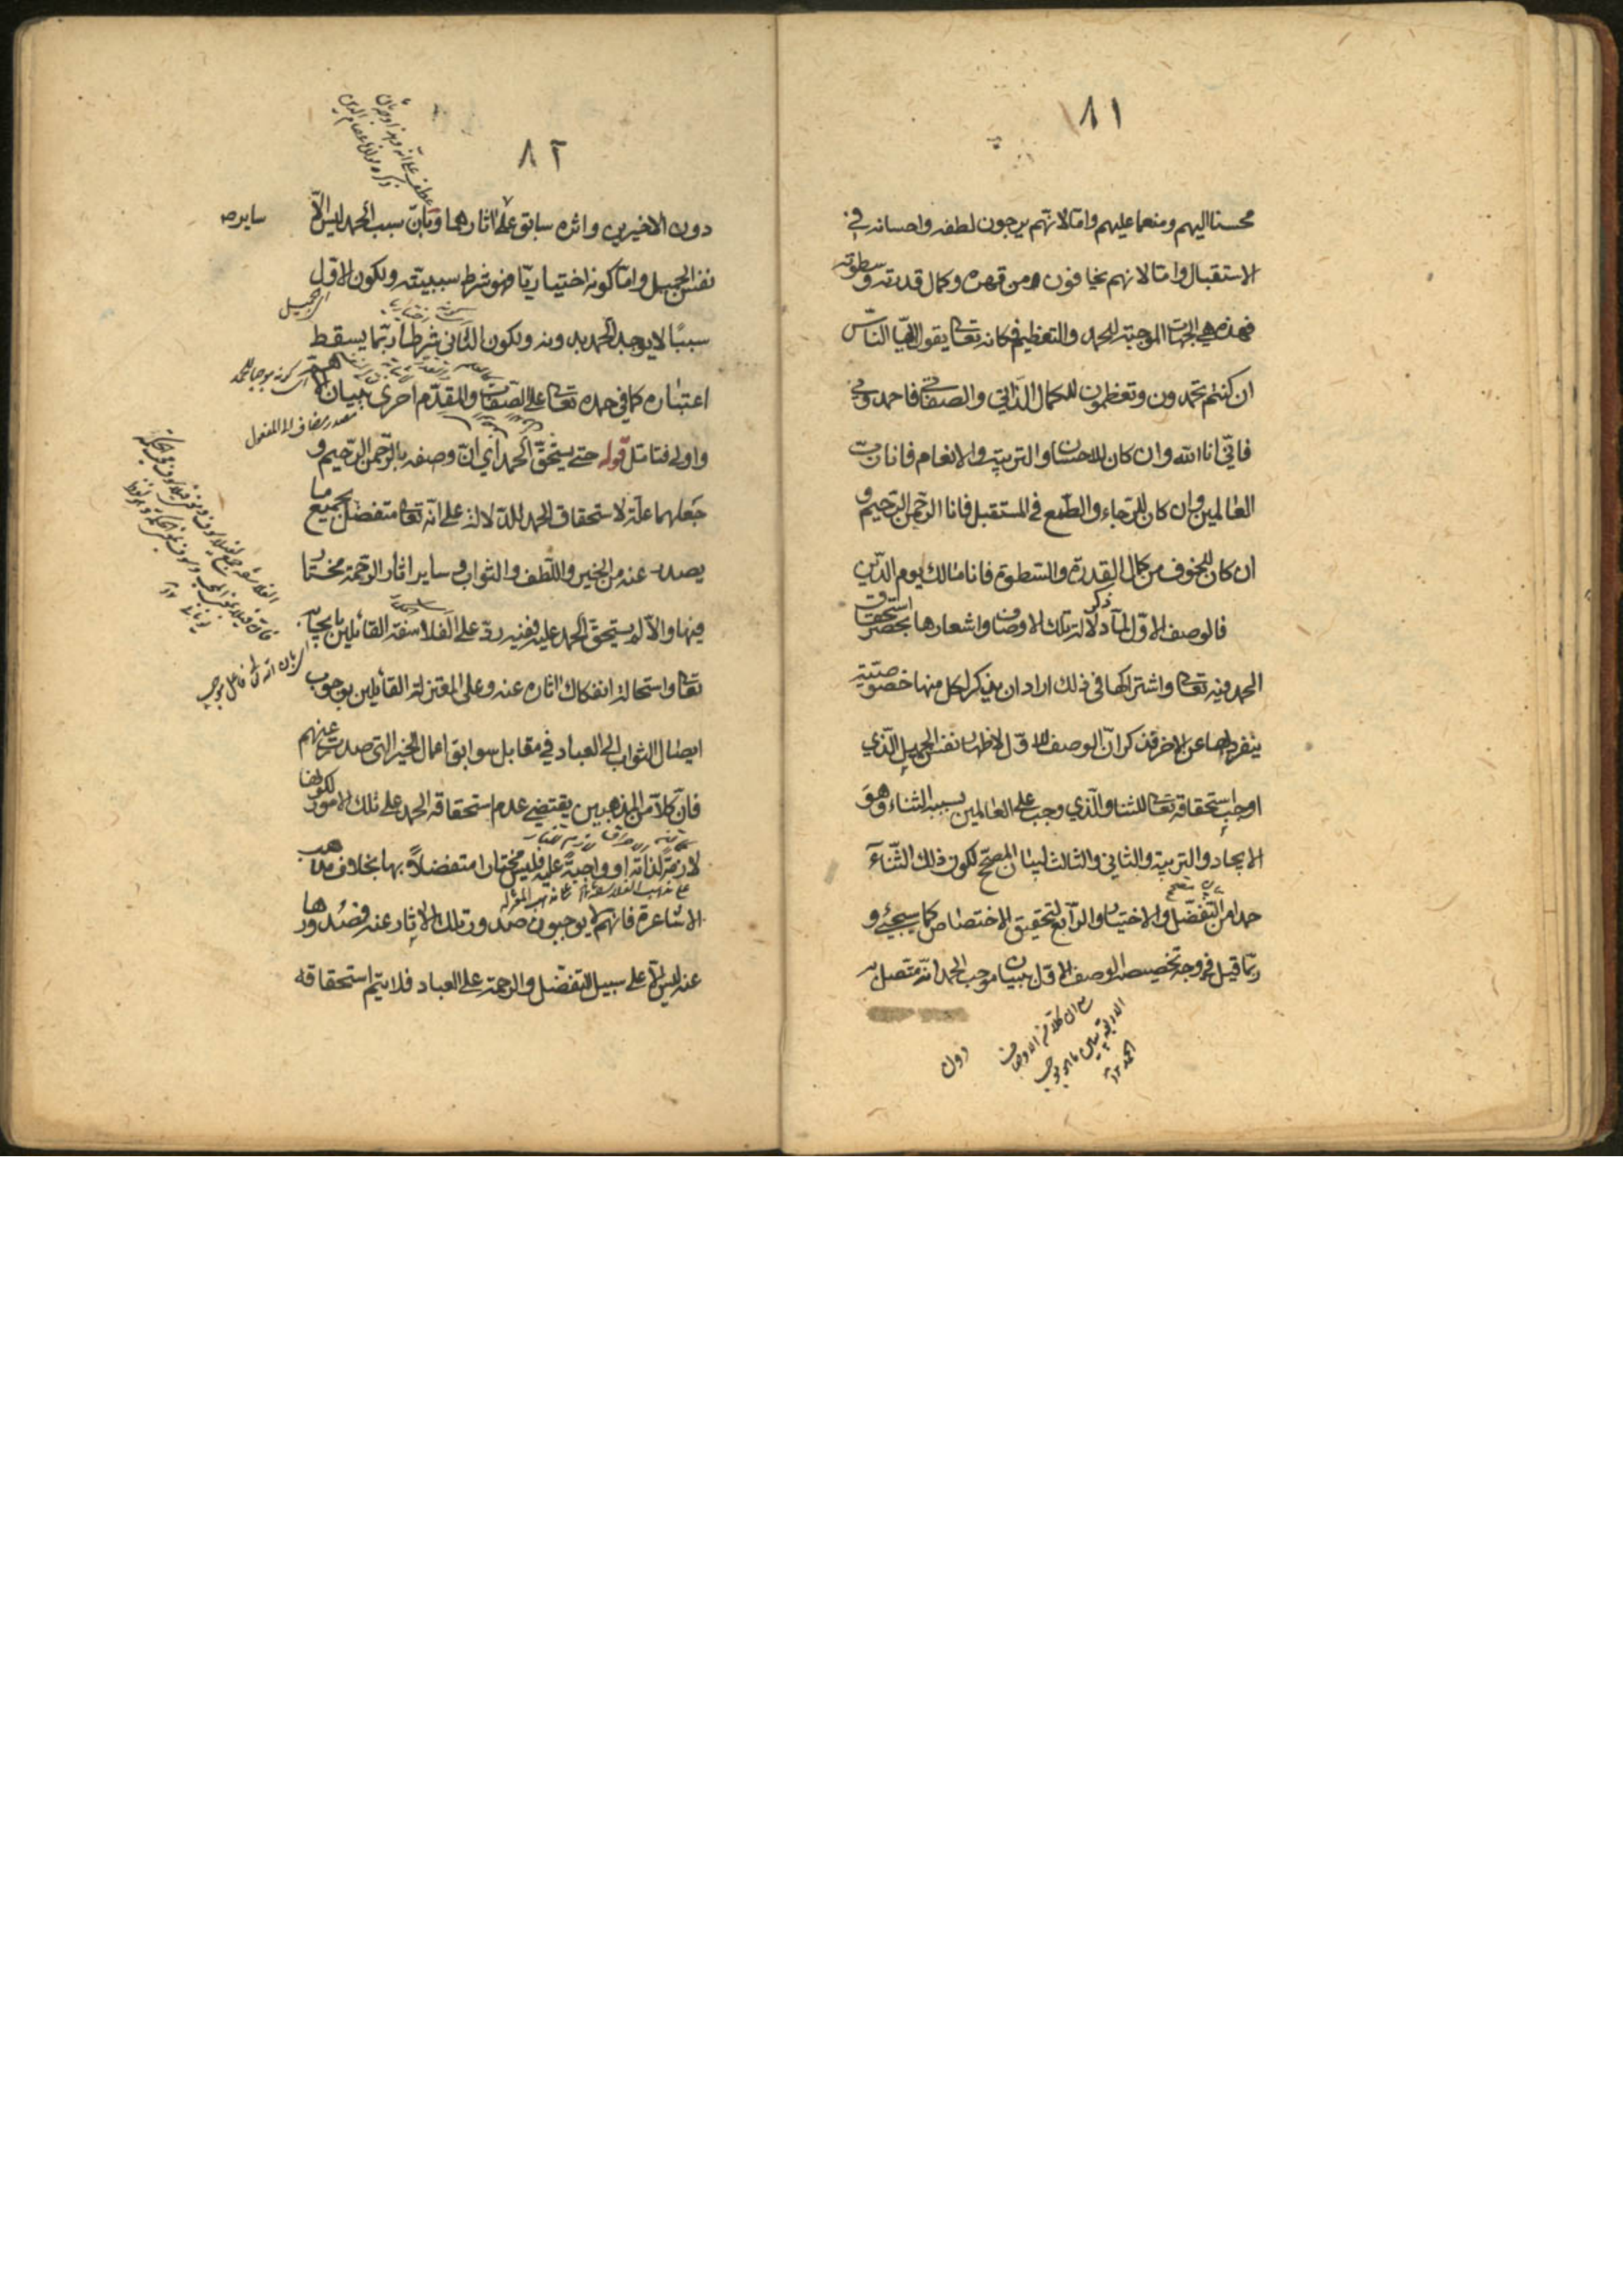 ٨١
محسنا اليهم ومنعما عليهم واما لانهم يرجون لطفه واحسانه في
الاستقبال واما لانهم يخافون من قهره وكمال قدرته وسطوته
فهذه هي الجهات الموجبة للحمد والتعظيم فكانه تعالى يقول ايها الناس
ان كنتم تحمدون وتعظمون للكمال الذاتي والصفاتي فاحمدوني
فاني انا الله وان كان للاحسان والتربية والانعام فانا رب
العالمين وان كان للرجاء والطمع في المستقبل فانا الرحمن الرحيم و
ان كان للخوف من كمال القدرة والسطوة فانا مالك يوم الدين
فالوصف الاول لما ذكر دلالة تلك الاوصاف واشعارها بحصر استحقاق
الحمد فيه تعالى واشتراكها في ذلك اراد ان يذكر لكل منها خصوصية
ينفرد بها عن الاخر فذكر ان الوصف الاول لاظهار نفس الجميل الذي
اوجب استحقاقه تعالى للثناء والذي وجب على العالمين بسببه الثناء وهو
الايجاد والتربية والثاني والثالث لبيان المصحح لكون ذلك الثناء
حمدا من التفضل والاختيار والرابع لتحقيق الاختصاص كما سيجيء و
ربما قيل في وجه تخصيصه الوصف الاول ببيان موجب الحمد انه متصل به
مع ان كلا من الاوصاف
الاربعة بيان ما يوجب
الحمد
دون
٨٢
دون الاخيرين واثره سابق على اثارهما وبان سبب الحمد ليس الا
نفس الجميل واما كونه اختياريا فهو شرط سببيته ولكون الاول
اي الجميل
سببا لا يوجد الحمد بدونه ولكون الثاني شرطا ربما يسقط
اي كونه موجبا للحمد
اعتباره كما في حمده تعالى على الصفات والمقدم احرى ببيان الاهم
مصدر مضاف الى المفعول
واولى فتامل قوله حتى يستحق الحمد اي ان وصفه بالرحمن الرحيم و
جعلهما علة لاستحقاق الحمد للدلالة على انه تعالى متفضل بجميع ما
يصدر عنه من الخير واللطف والثواب وساير اثار الرحمة مختار
فيها والا لم يستحق الحمد عليه ففيه رد على الفلاسفة القائلين بايجابه
اي بان الله تعالى فاعل موجب
تعالى واستحالة انفكاك اثاره عنه وعلى المعتزلة القائلين بوجوب
ايصال الثواب الى العباد في مقابل سوابق اعمال الخير التي صدرت عنهم
فان كلا من المذهبين يقتضي عدم استحقاقه الحمد على تلك الامور لكونها
لازمة لذاته او واجبة عليه فليس مختارا متفضلا بها بخلاف مذهب
على مذهب الفلاسفة على مذهب المعتزلة
الاشاعرة فانهم لا يوجبون صدور تلك الاثار عنه فصدورها
عنه ليس الا على سبيل التفضل والرحمة على العباد فلا يتم استحقاقه